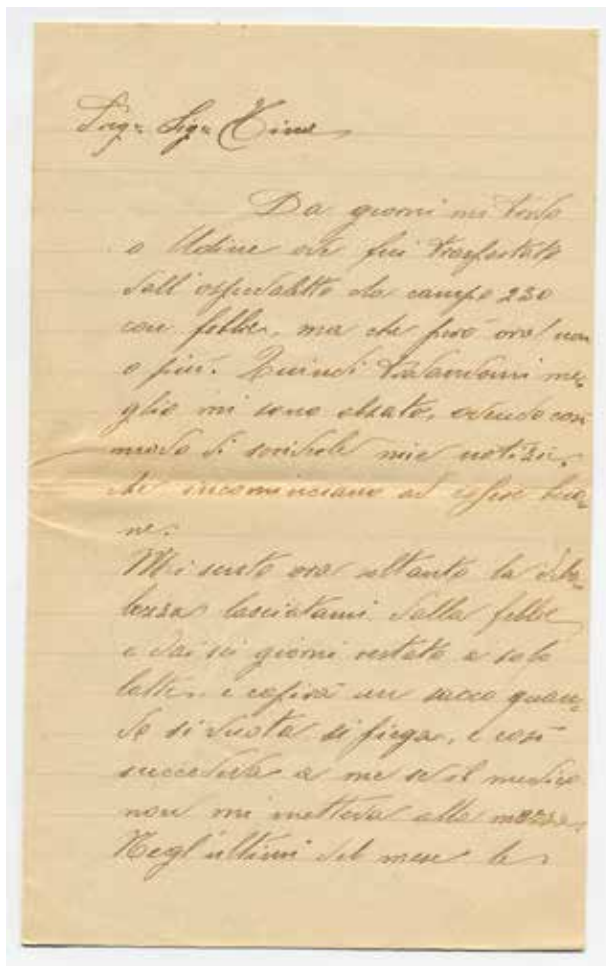 Da giorni mi trovo
a Udine ove fui trasportato
dall'ospedaletto da campo 230
con febbre, ma che però ora non
o più. Quindi trovandomi me-
glio mi sono alzato, avendo così
modo di scriverle mie notizie,
che incominciano ad essere buo-
ne.
Mi sento ora soltanto la debo-
lezza lasciatami dalla febbre
e dai sei giorni restato a solo
latte. e capirà un sacco quan-
do si vuota si piega, e così
succedeva a me se il medico
non mi metteva alla mezza.
Negl'ultimi del mese le